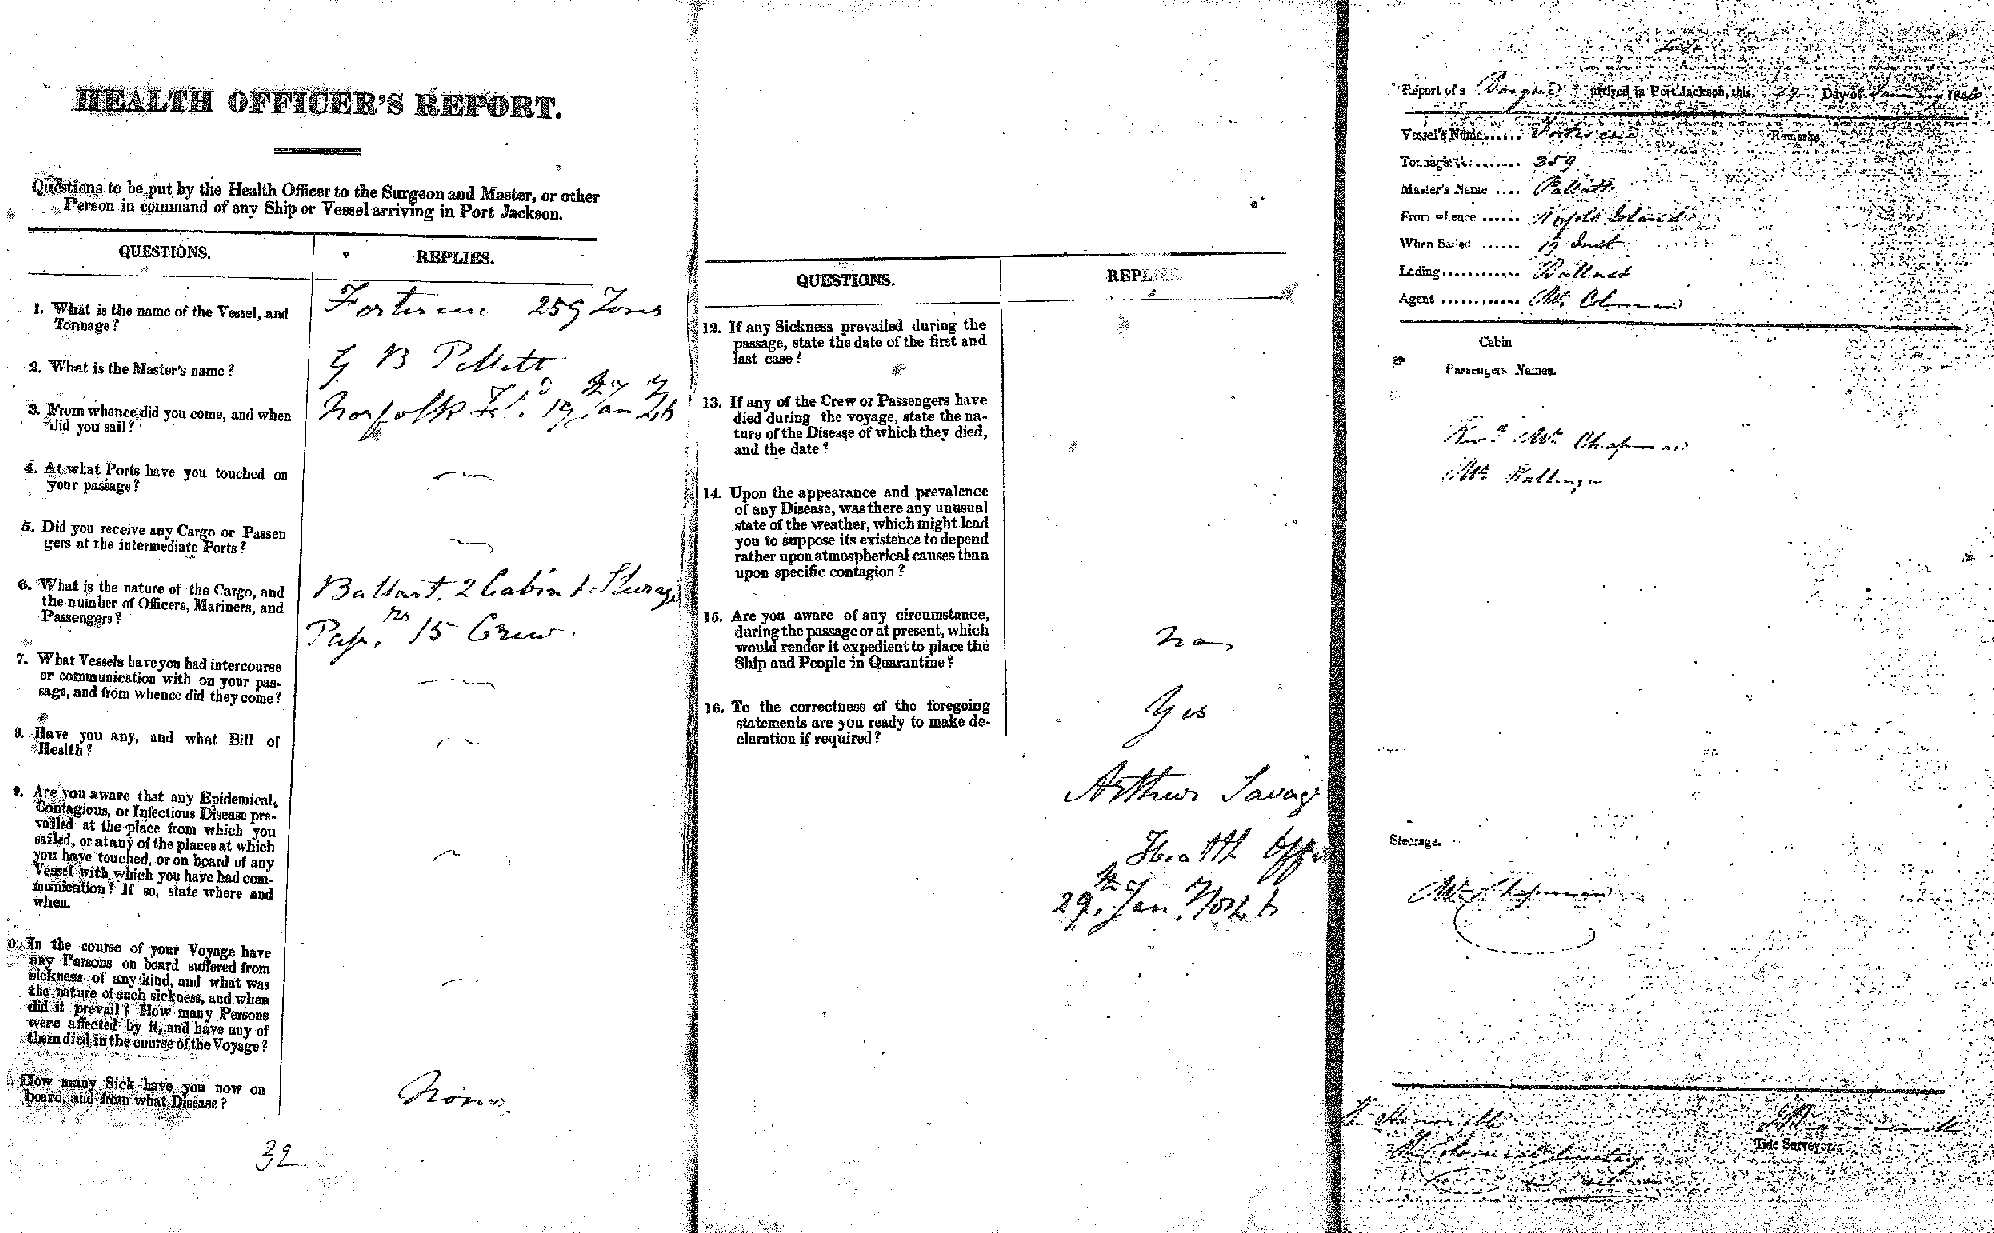 HEALTH OFFICER'S REPORT.
Questions to be put by the Health Officer to the Surgeon and Master, or other
Person in command of any Ship or Vessel arriving in Port Jackson.
QUESTIONS. REPLIES.
1. What is the name of the Vessel, and
Tonnage?
259 Tons
2. What is the Master's name?
G B Pellett
3. From whence did you come, and when
did you sail?
Norfolk Isld. 19th Jany
4. At what Ports have you touched on
your passage?
5. Did you receive any Cargo or Passen
gers at the intermediate Ports?
6. What is the nature of the Cargo, and
the number of Officers, Mariners, and
Passengers?
Ballast. 2 Cabin 1 Sterage
Passrs. 15 Crew.
7. What Vessels have you had intercourse
or communication with on your pas-
sage, and from whence did they come?
8. Have you any, and what Bill of
Health?
9. Are you aware that any Epidemical,
Contagious, or Infectious Disease pre-
vailed at the place from which you
sailed, or at any of the places at which
you have touched, or on board of any
Vessel with which you have had com-
munication? If so, state where and
when.
0. In the course of your Voyage have
any Persons on board suffered from
sickness of any kind, and what was
the nature of such sickness, and when
did it prevail? How many Persons
were affected by it, and have any of
them died in the course of the Voyage?
How many Sick have you now on
board, and from what Disease?
None
32
QUESTIONS. REPLIES
12. If any Sickness prevailed during the
passage, state the date of the first and
last case?
13. If any of the Crew or Passengers have
died during the voyage, state the na-
ture of the Disease of which they died,
and the date?
14. Upon the appearance and prevalence
of any Disease, was there any unusual
state of the weather, which might lead
you to suppose its existence to depend
rather upon atmospherical causes than
upon specific contagion?
15. Are you aware of any circumstance,
during the passage or at present, which
would render it expedient to place the
Ship and People in Quarantine?
No
16. To the correctness of the foregoing
statements are you ready to make de-
claration if required?
Yes
Arthur Savage
Health Offi
29th. Jany.
Report of a arrived in Port Jackson, this 29 Day of January
Vessel's Name...... Remarks
Tonnage.......... 259
Master's Name .... Pellett
From whence ...... Norfolk Island
When Sailed ...... 19 Inst
Lading............ Ballast
Agent ............
Cabin
Passengers Names.
Revd. Mr. Chapman
Mr.
Steerage.
Mr. Chapman
Tide Surveyor.